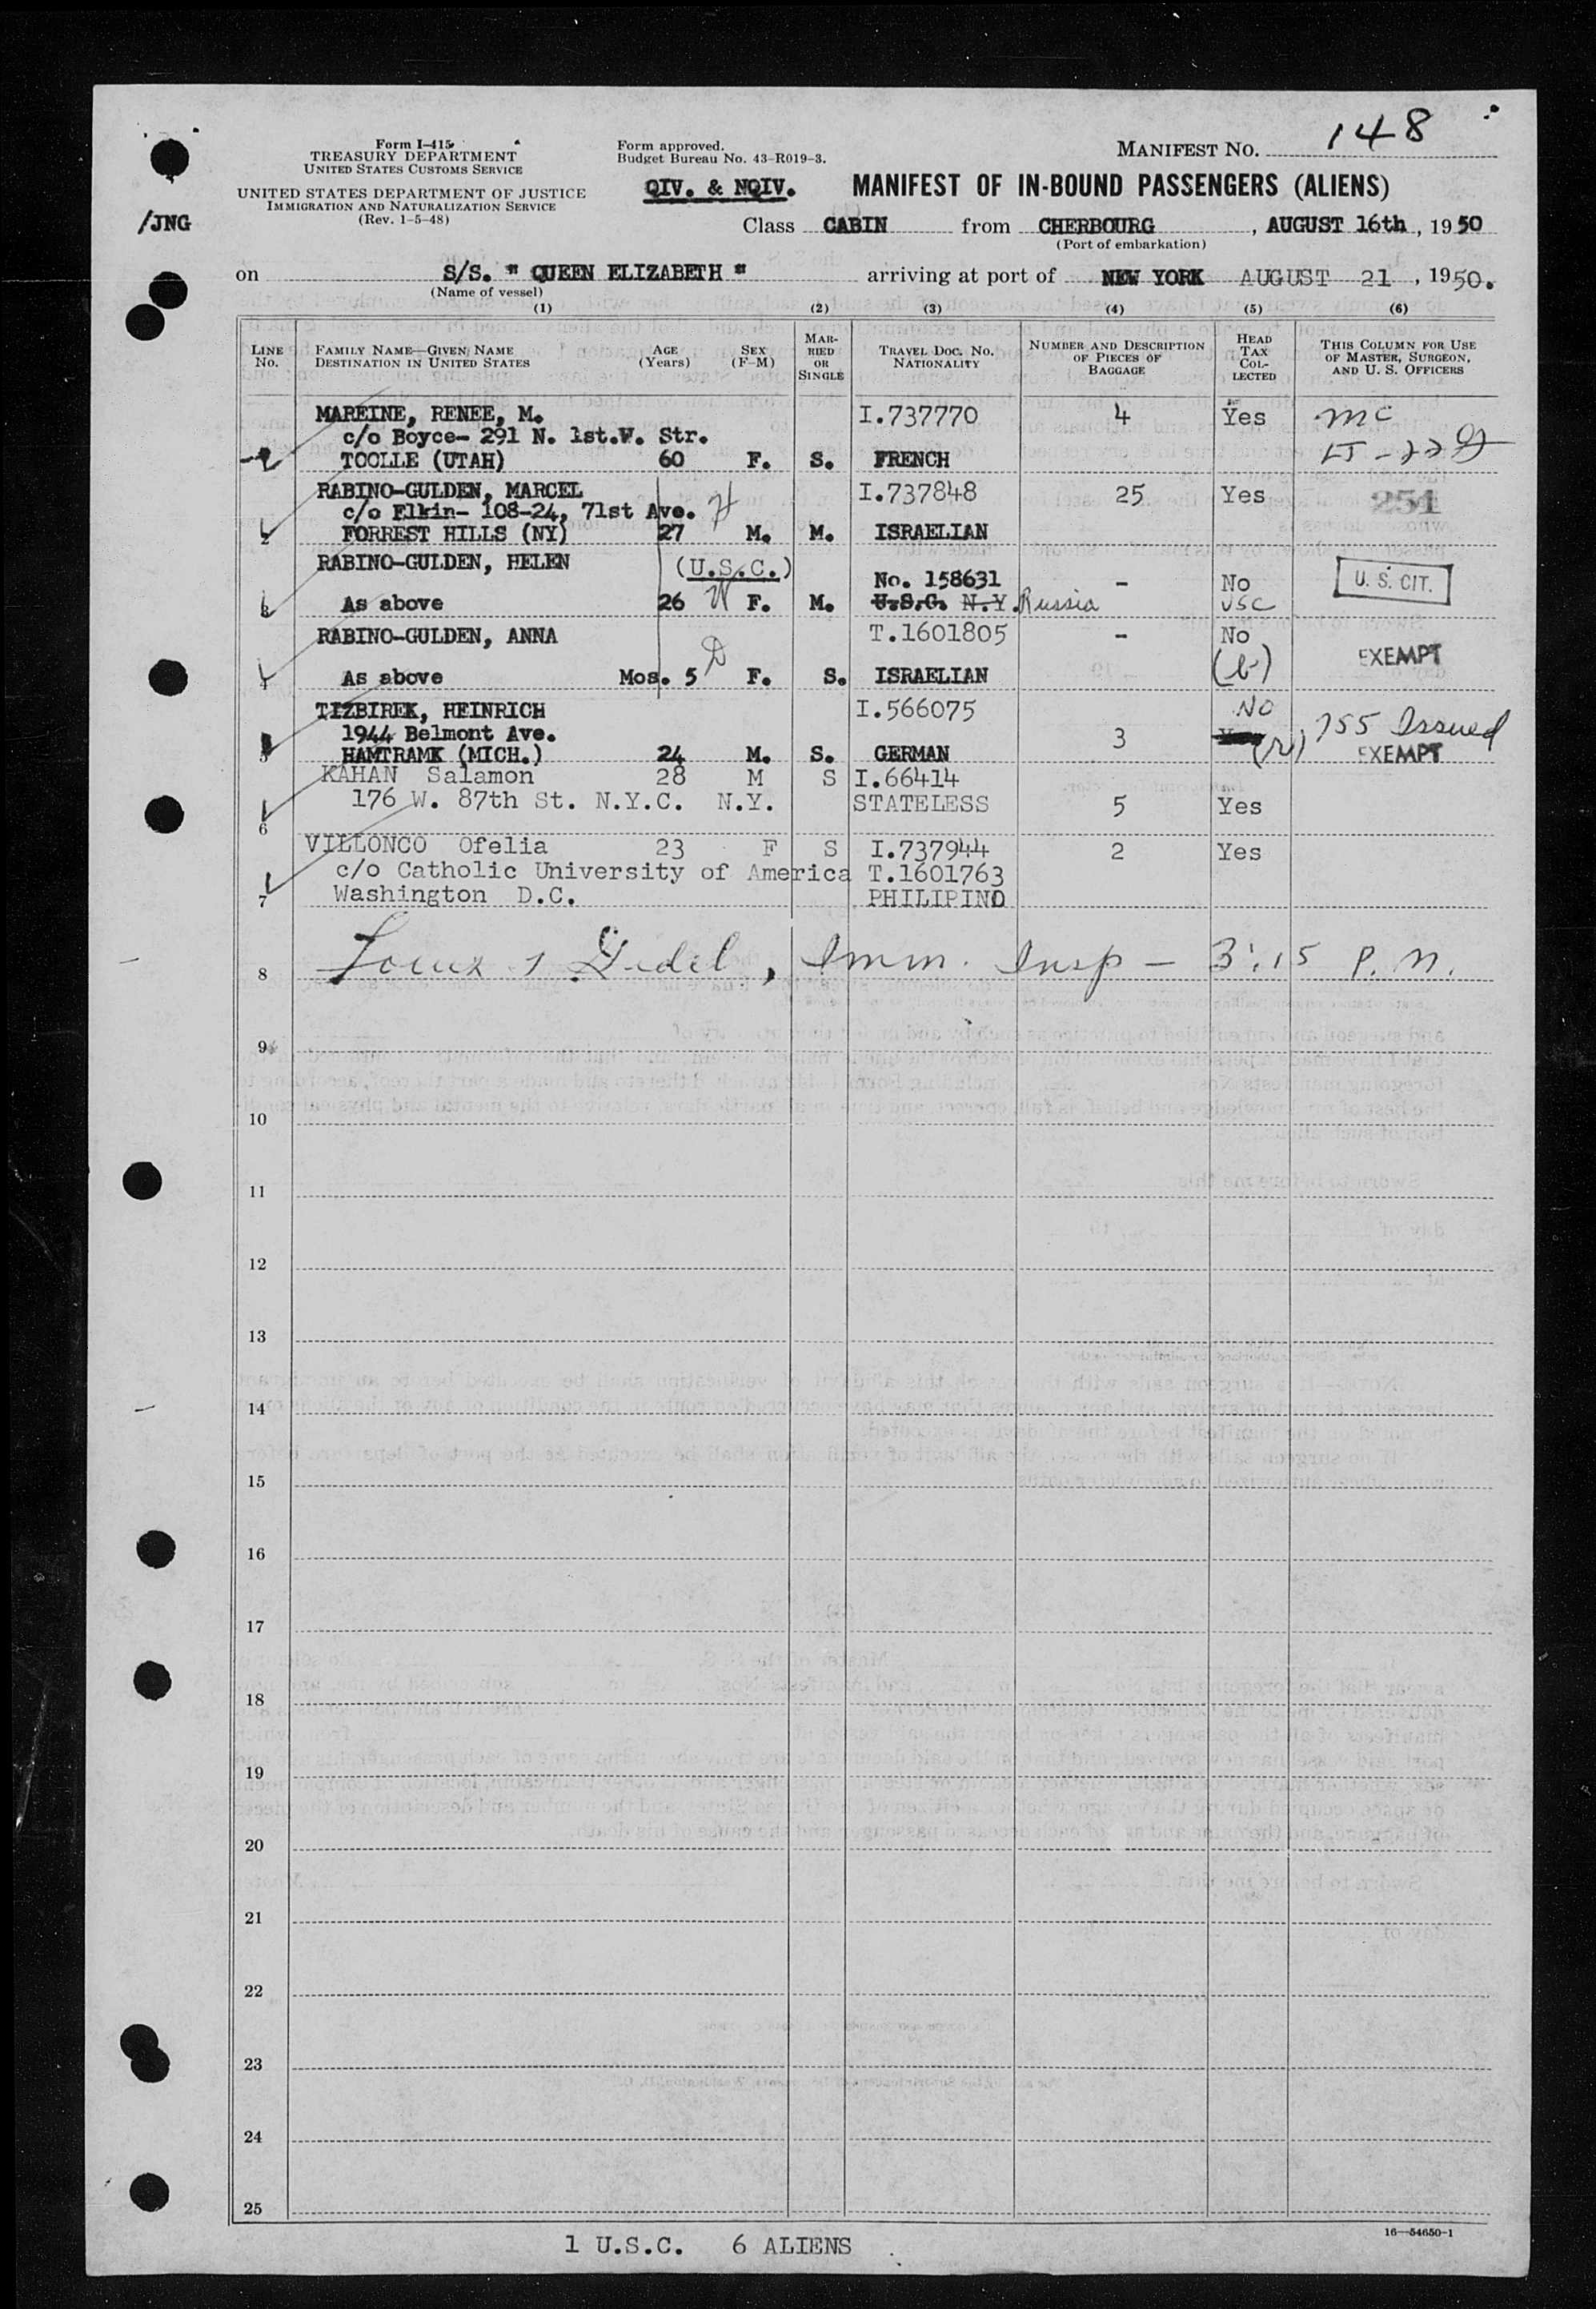 148
Form I-415
TREASURY DEPARTMENT
UNITED STATES CUSTOMS SERVICE
UNITED STATES DEPARTMENT OF JUSTICE
IMMIGRATION AND NATURALIZATION SERVICE
(Rev. 1-5-48)
Form approved.
Budget Bureau No. 43-R019-3.
MANIFEST NO.
/JNG
QIV. & NQIV. MANIFEST OF IN-BOUND PASSENGERS (ALIENS)
Class CABIN from CHERBOURG, AUGUST 16th, 1950
(Port of embarkation)
on S/S. " QUEEN ELIZABETH " arriving at port of NEW YORK AUGUST 21, 1950.
(Name of vessel)
(1) (2) (3) (4) (5) (6)
LINE No. FAMILY NAME—GIVEN NAME DESTINATION IN UNITED STATES AGE (Years) SEX (F-M) MARRIED OR SINGLE TRAVEL DOC. NO. NATIONALITY NUMBER AND DESCRIPTION OF PIECES OF BAGGAGE HEAD TAX COLLECTED THIS COLUMN FOR USE OF MASTER, SURGEON, AND U. S. OFFICERS
MAREINE, RENEE, M. I.737770 4 Yes mc
c/o Boyce- 291 N. 1st.W. Str.
TOOLLE (UTAH) 60 F. S. FRENCH
RABINO-GULDEN, MARCEL I.737848 25 Yes 251
c/o Elkin- 108-24, 71st Ave. H
2 FORREST HILLS (NY) 27 M. M. ISRAELIAN
RABINO-GULDEN, HELEN (U.S.C.) No. 158631 - No U. S. CIT.
3 As above 26 W F. M. U.S.C. N.Y. Russia USC
RABINO-GULDEN, ANNA T.1601805 - No
D EXEMPT
4 As above Mos. 5 F. S. ISRAELIAN (b)
TIZBIREK, HEINRICH I.566075 No
1944 Belmont Ave. 3 (N) 755 Issued
5 HAMTRAMK (MICH.) 24 M. S. GERMAN EXEMPT
KAHAN Salamon 28 M S I.66414
176 W. 87th St. N.Y.C. N.Y. STATELESS 5 Yes
6
VILLONCO Ofelia 23 F S I.737944 2 Yes
c/o Catholic University of America T.1601763
7 Washington D.C. PHILIPINO
8 Imm. Insp - 3:15 P.M.
9
10
11
12
13
14
15
16
17
18
19
20
21
22
23
24
25
16—54650-1
1 U.S.C. 6 ALIENS